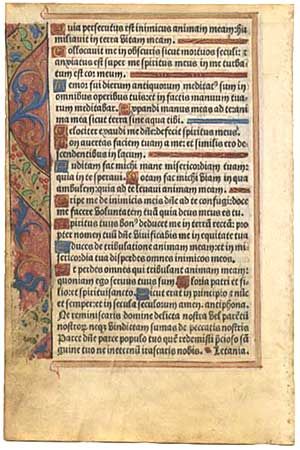 Quia persecutus est inimicus animam meam: hu
miliauit in terra vitam meam.
Collocauit me in obscuris sicut mortuos seculi: et
anxiatus est super me spiritus meus in me turba
tum est cor meum.
Memor fui dierum antiquorum meditatꝰ sum in
omnibus operibus tuis: et in factis manuum tua
rum meditabar. Expandi manus meas ad te: ani
ma mea sicut terra sine aqua tibi.
Velociter exaudi me dn̄e: defecit spiritus meus.
Non auertas faciem tuam a me: et similis ero de
scendentibus in lacum.
Auditam fac michi mane misericordiam tuam:
quia in te speraui. Notam fac michi viam in qua
ambulem: quia ad te leuaui animam meam.
Eripe me de inimicis meis dn̄e ad te confugi: doce
me facere voluntatem tuā quia deus meus es tu.
Spiritus tuus bonꝰ deducet me in terrā rectā: pro
pter nomen tuū dn̄e viuificabis me in equitate tua
Educes de tribulatione animam meam: et in mi
sericordia tua disperdes omnes inimicos meos.
Et perdes omnes qui tribulant animam meam:
quoniam ego seruus tuus sum Gloria patri et fi
lio: et spiritui sancto. Sicut erat in principio et nūc
et semper: et in secula seculorum amen. antiphona.
Ne reminiscaris domine delicta nostra vel parētū
nostroꝝ: neqꝫ vindictam sumas de peccatis nostris
Parce dn̄e parce populo tuo quē redemisti p̄cioso sā
guine tuo ne ineternū irascaris nobis. Letania.